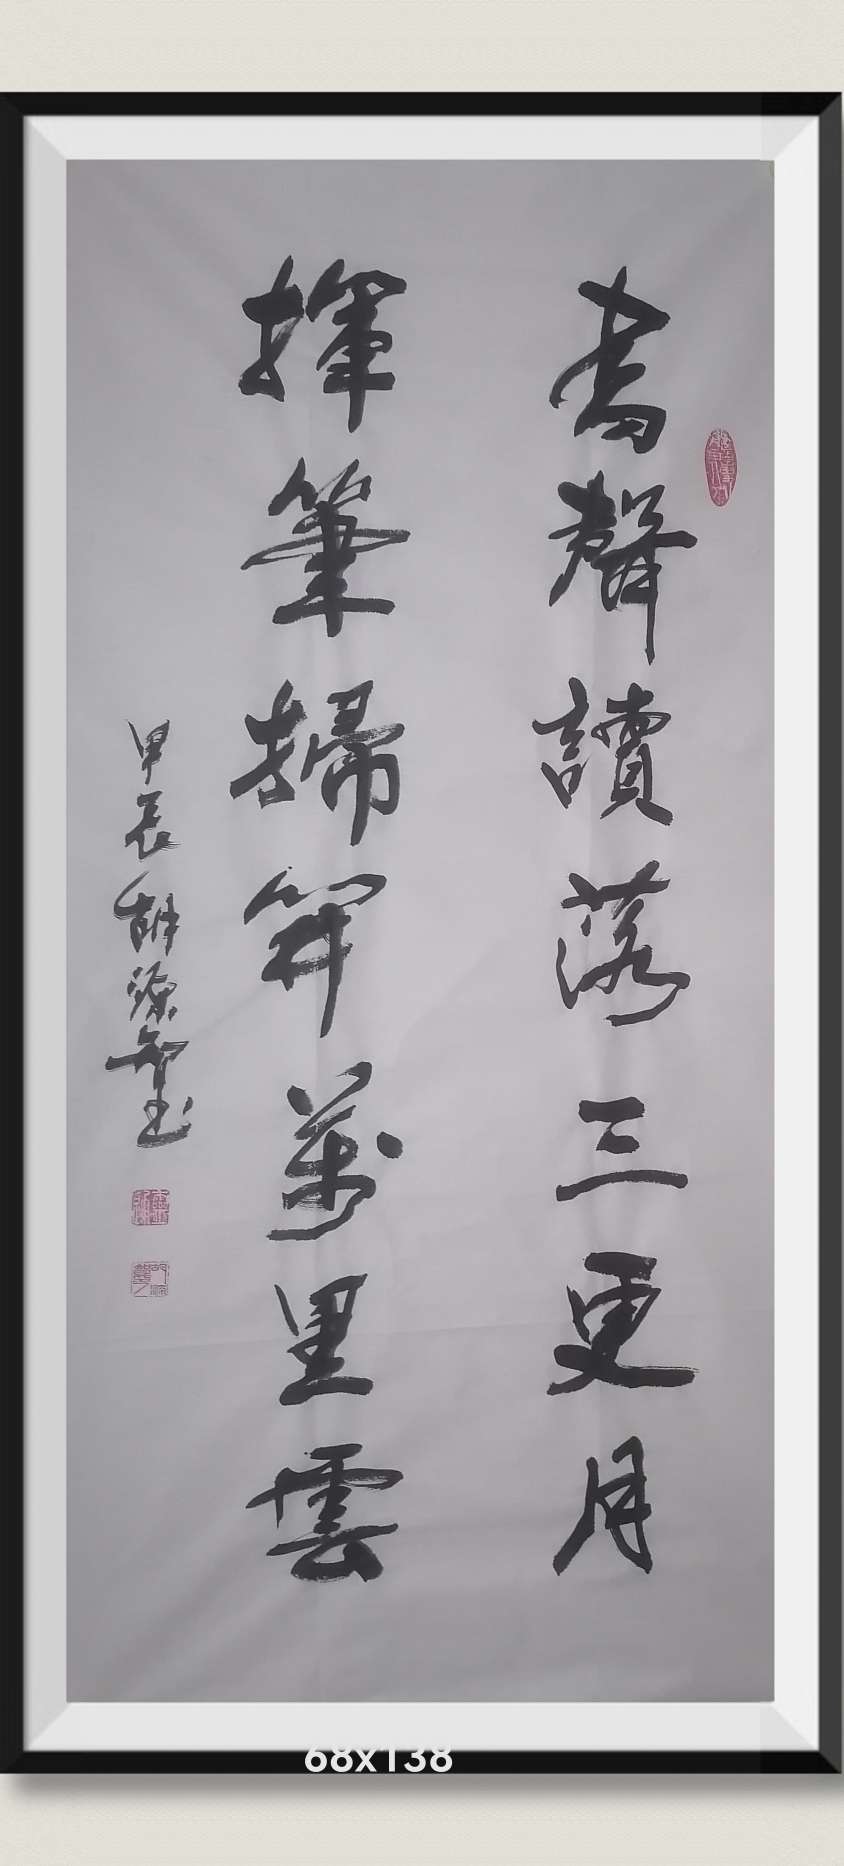 書聲讀落三更月
揮筆掃開萬里雲
甲辰胡源
68x138